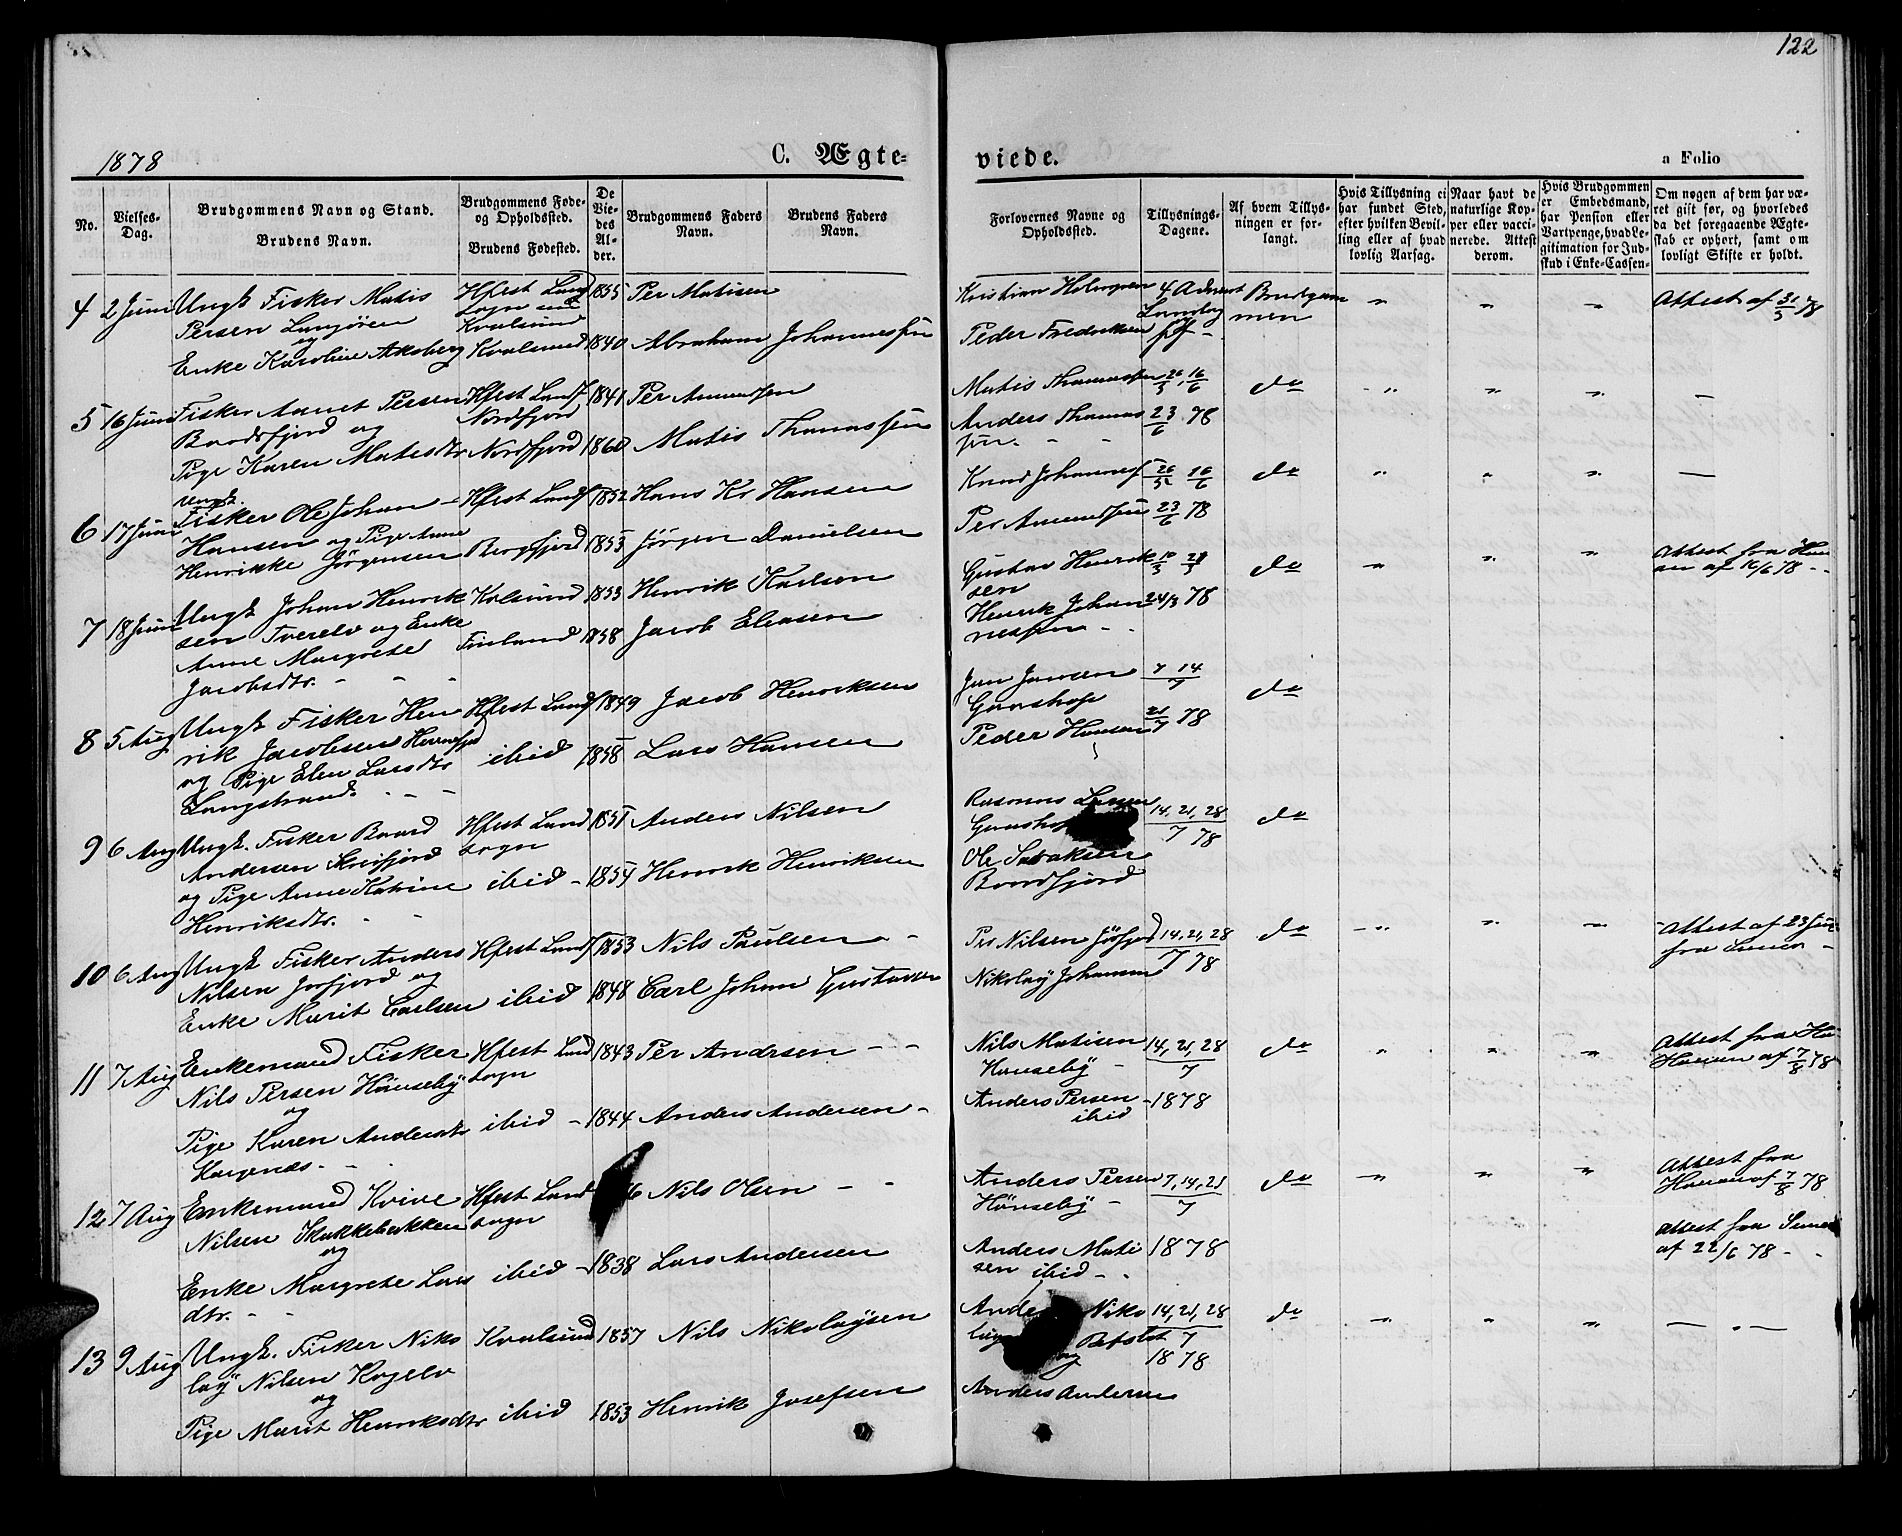 122
1878
C. Ægte-
viede.
a Folio
No.
Vielses-
Dag.
Brudgommens Navn og Stand.
Brudens Navn.
Brudgommens Føde-
og Opholdssted.
Brudens Fødested.
De
Vie-
des
Al-
der.
Brudgommens Faders
Navn.
Brudens Faders
Navn.
Forlovernes Navne og
Opholdssted.
Tillysnings-
Dagene.
Af hvem Tillys-
ningen er for-
langt.
Hvis Tillysning ei
har fundet Sted,
efter hvilken Bevil-
ling eller af hvad
lovlig Aarsag.
Naar havt de
naturlige Kop-
per eller vacci-
nerede. Attest
derom.
Hvis Brudgommen
er Embedsmand,
har Pension eller
Vartpenge, hvad Le-
gitimation for Ind-
skud i Enke-Cassen-
Om nogen af dem har væ-
ret gift før, og hvorledes
da det foregaaende Ægte-
skab er ophørt, samt om
lovligt Skifte er holdt.
4 2 Juni Ungk Fisker Matis
Persen
og
Enke Karoline
Hfest Land
sogn
Kvalsund
Kvalsund
1855 Per Matisen
1840 Abraham Johannessen
Kristian Holmgren
Peder Fredriksen
4 Advent
Brudgom
men
" " "
Attest af 31/5 78
5 16 Juni Fisker Persen
og
Pige Karen Matisdtr
Hfest Lands
Nordfjord
Nordfjord
1841 Per Amundsen
1860 Matis Thomassen
Matis Thomassen
Anders Thomas
sen - -
26/5, 16/6
23/6 78
do
" " " -
6 17 Juni
Ungk.
Fisker Ole Johan -
Hansen og Pige Anne
Henrikke Jørgensen
Hfest Lands
Bergsfjord
1852 Hans Kr Hansen
1853 Jørgen Danielsen
Knud Johannes
Per Amundsen
26/5 16/6
23/6 78
do
" " " -
7 18 Juni Ungk Johan Henrik
sen Tverelv og Enke
Anne Margrete
Jacobsdtr. - - -
Kvalsund
Finland
1853 Henrik Karlsen
1858 Jacob Eliasen
Gustav Henrik
sen
Henrik Johan
nessen - -
24/3 78
do
" " "
Attest fra
af 16/6 78 - -
8 5 Aug Ungk Fisker Hen
rik Jacobsen
og Pige Elen Larsdtr
Langstrand. - - -
Hfest Lands
ibid
1849 Jacob Henriksen
1858 Lars Hansen
Jan Jansen
Peder Hansen
7 14/7
21/7 78
do
9 6 Aug Ungk. Fisker Baard
Andersen
og Pige Anne Katrine
Henriksdtr. - -
Hfest Land
sogn
ibid -
1851 Anders Nilsen
1854 Henrik Henriksen
Rasmus Larsen
Ole Isaksen
14, 21, 28
7 78
do
10 6 Aug Ungk Fisker Anders
Nilsen Jøfjord og
Enke Marit Carlsen
Hfest Lands
ibid
1853 Nils Paulsen - -
1848 Carl Johan Gustavsen
Per Nilsen Jøfjord
Nikolay Johansen
14, 21, 28
7 78
do
" " "
Attest af 23 Juni
fra -
11 7 Aug Enkemand Fisker
Nils Persen Hønseby
og
Pige Karen Andersdtr
- -
Hfest Land
sogn
ibid -
1843 Per Andersen - -
1844 Anders Andersen -
Nils Matisen
Hønseby -
Anders Persen
ibid
14, 21, 28
7
- 1878
do
" " "
Attest fra Ha
af 7/8 78
12 7 Aug Enkemand Kvive
Nilsen Skukkebakken
og
Enke Margrete Lars
dtr. - -
Hfest Land
sogn
ibid -
6 Nils Olsen - -
1838 Lars Andersen
Anders Persen
Hønseby -
Anders Mati
sen ibid - -
7, 14, 21
7
1878
do
" " "
Attest fra
af 7/8 78
Attest fra
af 22/6 78 - -
13 9 Aug Ungk. Fisker Niko
lay Nilsen
og
Pige Marit Henriksdtr
Kvalsund
ibid
1857 Nils Nikolaysen
1853 Henrik Josefsen
Niko
lay
Anders Andersen
14, 21, 28
7
1878
do
" " " - . -